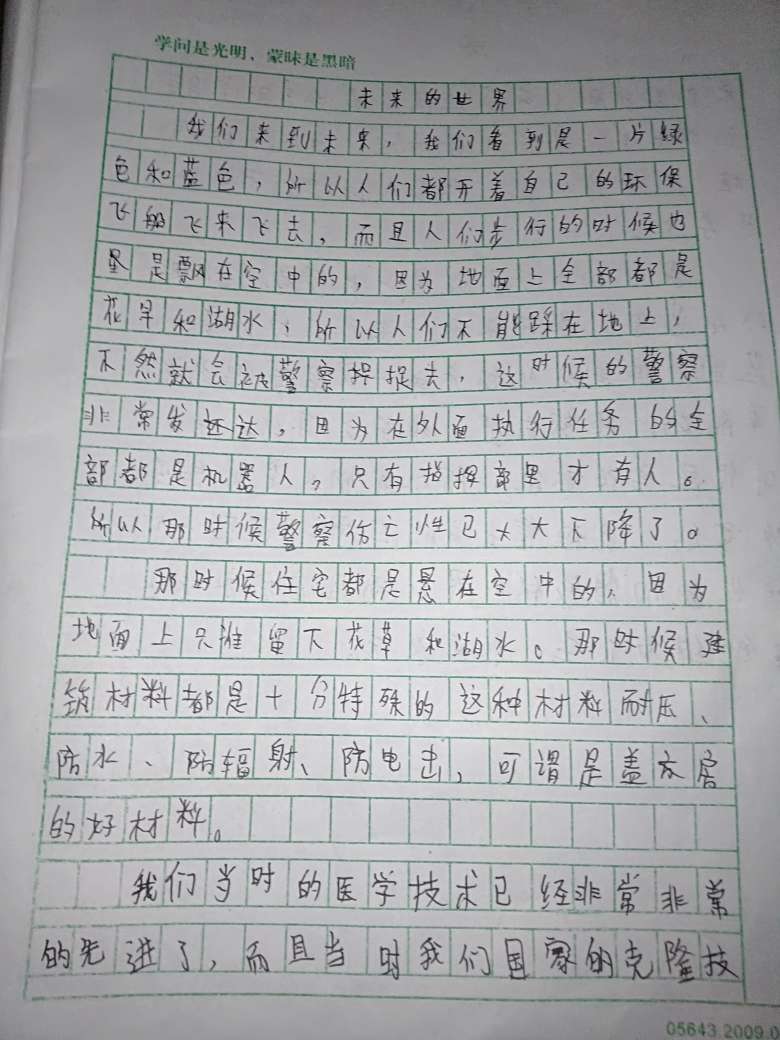 学问是光明，蒙昧是黑暗
未来的世界
我们来到未来，我们看到是一片绿
色和蓝色，所以人们都开着自己的环保
飞船飞来飞去，而且人们步行的时候也
是飘在空中的，因为地面上全部都是
花草和湖水，所以人们不能踩在地上，
不然就会被警察捉去，这时候的警察
非常发达，因为在外面执行任务的全
部都是机器人，只有指挥部里才有人。
所以那时候警察伤亡性已大大下降了。
那时候住宅都是悬在空中的，因为
地面上只准留下花草和湖水。那时候建
筑材料都是十分特殊的这种材料耐压、
防水、防辐射、防电击，可谓是盖房
的好材料。
我们当时的医学技术已经非常非常
的先进了，而且当时我们国家的克隆技
05643.2009.0